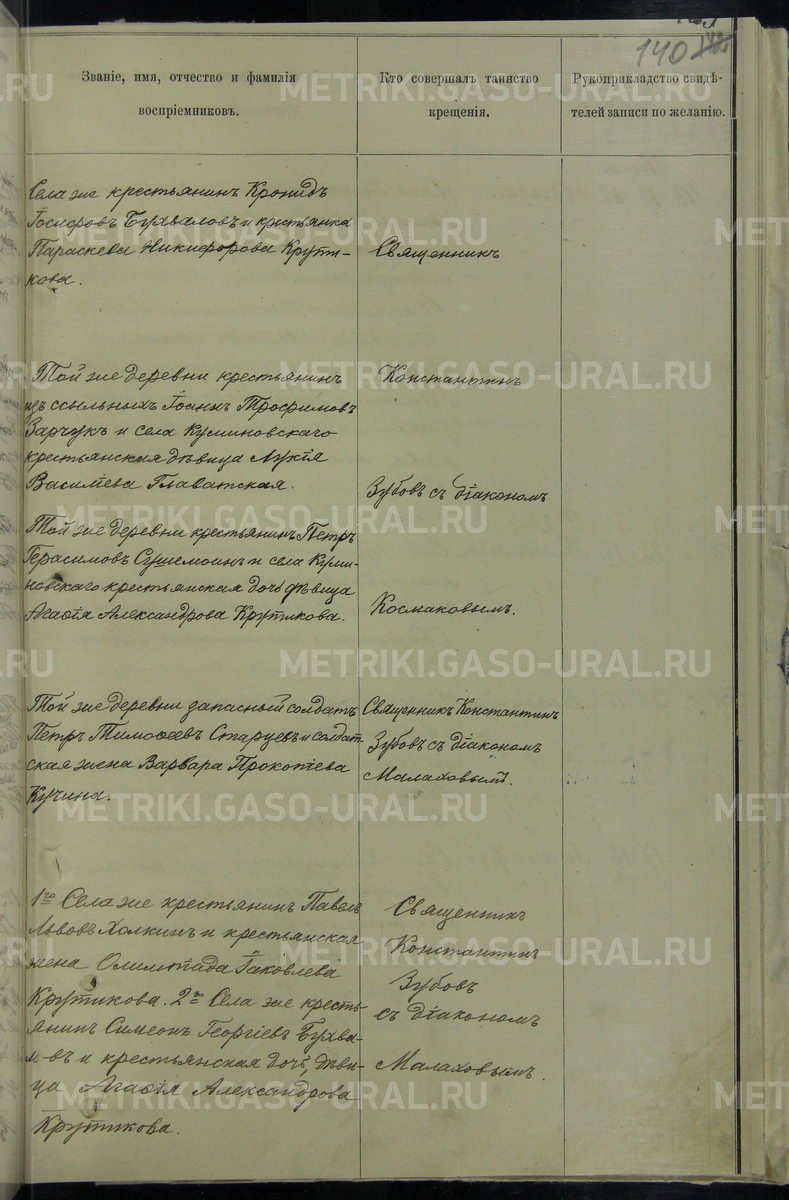 140
Званіе, имя, отчество и фамилія
воспріемниковъ.
Кто совершалъ таинство
крещенія.
Рукоприкладство свидѣ-
телей записи по желанію.
Села же крестьянинъ Кронидъ
Іосифовъ Бухваловъ и крестьянка
Параскева Никифорова Крути-
кова.
Священникъ
Той же деревни крестьянинъ
изъ ссыльныхъ Іоаннъ Трофимовъ
Зарчукъ и села Куминовскаго
крестьянская дѣвица Лукія
Василіева Главатская.
Константинъ
Зубовъ съ діакономъ
Той же деревни крестьянинъ Петръ
Герасимовъ и села Куми-
новскаго крестьянская дочь дѣвица
Агафія Александрова Крутикова.
Космаковымъ.
Той же деревни запасный солдатъ
Петръ Тимофеевъ Старцевъ и солдат-
ская жена Варвара Прокопіева
Кучина.
Священникъ Константинъ
Зубовъ съ діакономъ
Малаховымъ.
1го Села же крестьянинъ Павелъ
Львовъ Холкинъ и крестьянская
жена Олимпіада Іаковлева
Крутикова. 2го Села же кресть-
янинъ Симеонъ Георгіевъ Бухва-
л-въ и крестьянская дочь, дѣви-
ца Агафія Александрова
Крутикова.
Священникъ
Константинъ
Зубовъ
съ діакономъ
Малаховымъ.
METRIKI.GASO-URAL.RU